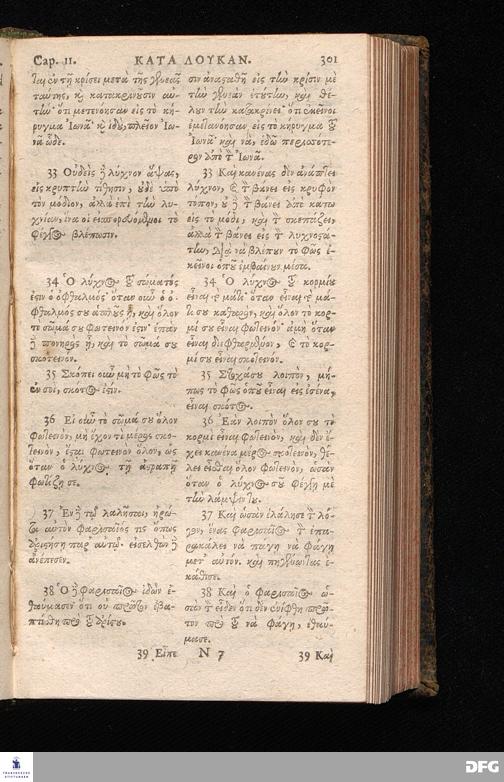 Cap. 11. ΚΑΤΑ ΛΟΥΚΑΝ. 301
ται ἐν τῇ κρίσει μετὰ τῆς γενεᾶς
ταύτης, κ κατακρινοῦσιν αὐ-
τὴν· ὅτι μετενόησαν εἰς τὸ κή-
ρυγμα Ἰωνᾶ· κ ἰδοὺ, πλεῖον Ἰω-
νᾶ ὧδε.
33 Οὐδεὶς ἢ λύχνον ἅψας,
εἰς κρυπτὴν τίθησιν, οὐδὲ ὑπὸ
τὸν μόδιον, ἀλλὰ ἐπὶ τὴν λυ-
χνίαν, ἵνα οἱ εἰσπορευόμενοι τὸ
φέγγος βλέπωσιν.
34 Ὁ λύχνος τοῦ σώματός
ἐστιν ὁ ὀφθαλμός· ὅταν οὖν ὁ ὀ-
φθαλμός σου ἁπλοῦς ᾖ, καὶ ὅλον
τὸ σῶμά σου φωτεινόν ἐστιν· ἐπὰν
ἢ πονηρὸς ᾖ, καὶ τὸ σῶμά σου
σκοτεινόν.
35 Σκόπει οὖν μὴ τὸ φῶς τὸ
ἐν σοὶ, σκότος ἐστίν.
36 Εἰ οὖν τὸ σῶμά σου ὅλον
φωτεινὸν, μὴ ἔχον τὶ μέρος σκο-
τεινὸν, ἔσται φωτεινὸν ὅλον, ὡς
ὅταν ὁ λύχνος τῇ ἀστραπῇ
φωτίζῃ σε.
37 Ἐν ἢ τῷ λαλῆσαι, ἠρώ-
τα αὐτὸν Φαρισαῖός τις ὅπως
ἀριστήσῃ παρ' αὐτῷ· εἰσελθὼν ἢ
ἀνέπεσεν.
38 Ὁ ἢ Φαρισαῖος ἰδὼν ἐ-
θαύμασεν ὅτι οὐ πρῶτον ἐβα-
πτίσθη πρὸ τοῦ ἀρίστου.
39 Εἶπε
σιν ἀναστηθῆ εἰς τὴν κρίσιν μὲ
τὴν γενεὰν ἐτούτην, καὶ θέ-
λουν τὴν κατακρίνει· ὅτι ἐκεῖνοι
ἐμετανόησαν εἰς τὸ κήρυγμα τοῦ
Ἰωνᾶ· καὶ νὰ, ἐδῶ περισσότε-
ρον ἀπὸ τὸν Ἰωνᾶ.
33 Καὶ κανένας δὲν ἀνάπτει
λύχνον, καὶ τὸν βάνει εἰς κρυφὸν
τόπον, οὐ ἢ τὸν βάνει ἀπὸ κάτω
εἰς τὸ μόδι, καὶ τὸν σκεπάζει,
ἀλλὰ τὸν βάνει εἰς τὸν λυχνοστά-
την, διὰ νὰ βλέπουν τὸ φῶς ἐ-
κεῖνοι ὁποῦ ἐμβαίνουν μέσα.
34 Ὁ λύχνος τοῦ κορμίου
εἶναι τὸ μάτι· ὅταν εἶναι τὸ μά-
τι σου καθαρὸν, καὶ ὅλον τὸ κορ-
μί σου εἶναι φωτεινόν· ἀμὴ ὅταν
εἶναι διεφθαρμένον, καὶ τὸ κορ-
μί σου εἶναι σκοτεινόν.
35 Στοχάσου λοιπὸν, μή-
πως τὸ φῶς ὁποῦ εἶναι εἰς ἐσένα,
εἶναι σκότος.
36 Ἐὰν λοιπὸν ὅλον σου τὸ
κορμὶ εἶναι φωτεινὸν, καὶ δὲν ἔ-
χει κανένα μέρος σκοτεινὸν, θέ-
λει εἶσθαι ὅλον φωτεινὸν, ὡσὰν
ὅταν ὁ λύχνος σοῦ φέγγῃ μὲ
τὴν λάμψιν του.
37 Καὶ ὡσὰν ἐλάλησε τὸν λό-
γον, ἕνας Φαρισαῖος τὸν ἐπα-
ρακάλει νὰ πάγῃ νὰ φάγῃ
μετ' αὐτὸν, καὶ πηγαίνωντας ἐ-
κάθισε.
38 Καὶ ὁ Φαρισαῖος ὡ-
σὰν τὸν εἶδεν ὅτι δὲν ἐνίφθη πρῶ-
τον πρὸ τοῦ νὰ φάγῃ, ἐθαύ-
μασε.
N 7 39 Καὶ
FRANCKESCHE STIFTUNGEN
DFG